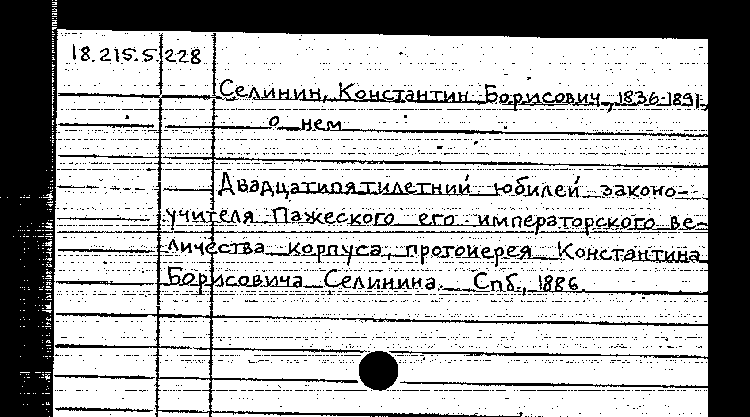 18.215.5.228
Селинин, Константин Борисович, 1836-1891,
о нем
Двадцатипятилетний юбилей законо-
учителя Пажеского его императорского ве-
личества корпуса, протоиерея Константина
Борисовича Селинина. Спб., 1886.